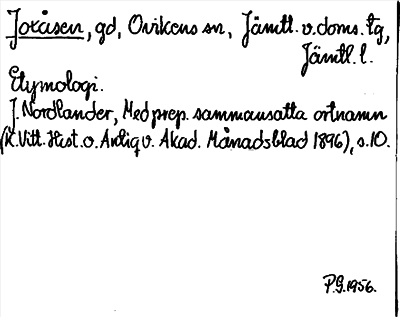 Joxåsen, gd, Ovikens sn, Jämtl. v. doms. tg,
Jämtl. l.
Etymologi.
J. Nordlander, Med prep. sammansatta ortnamn
(K. Vitt. Hist. o. Antiqv. Akad. Månadsblad 1896), s. 10.
P.G. 1956.